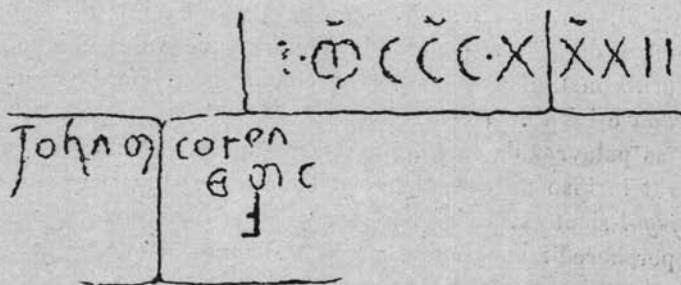 :·M̃ C C̃ C·X X̃XII
John M coren
E M C